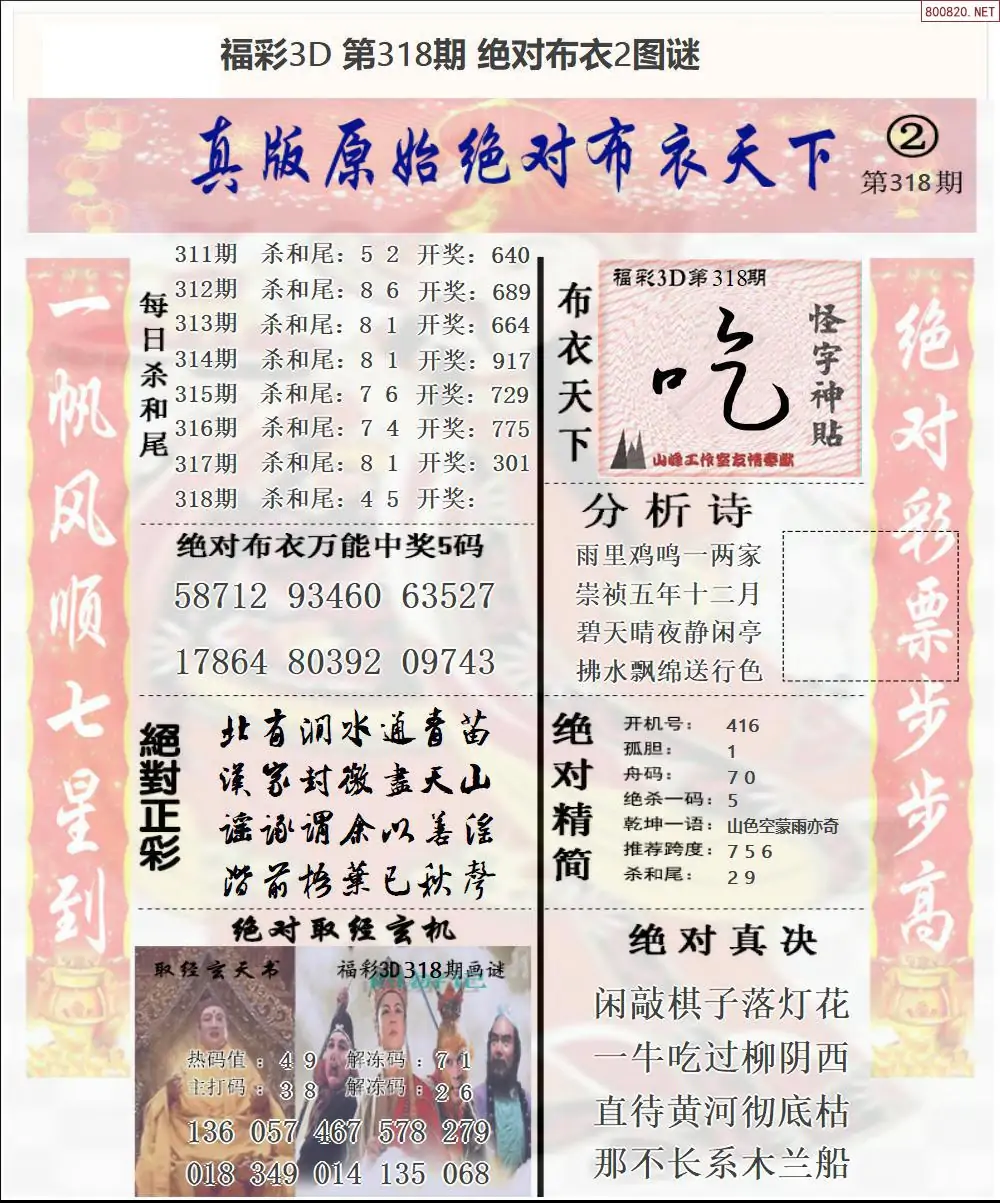 800820.NET
福彩3D 第318期 绝对布衣2图谜
真版原始绝对布衣天下
②
第318期
一帆风顺七星到
每日杀和尾
311期 杀和尾：5 2 开奖：640
312期 杀和尾：8 6 开奖：689
313期 杀和尾：8 1 开奖：664
314期 杀和尾：8 1 开奖：917
315期 杀和尾：7 6 开奖：729
316期 杀和尾：7 4 开奖：775
317期 杀和尾：8 1 开奖：301
318期 杀和尾：4 5 开奖：
绝对布衣万能中奖5码
58712 93460 63527
17864 80392 09743
絕對正彩
北有涧水通青苗
漢家封徵盡天山
谣诼谓余以善淫
階前梧葉已秋聲
绝对取经玄机
取经玄天书
福彩3D318期画谜
热码值：4 9 解冻码：7 1
主打码：3 8 解冻码：2 6
136 057 467 578 279
018 349 014 135 068
布衣天下
福彩3D第318期
吃
怪字神貼
山峰工作室友情奉献
分析诗
雨里鸡鸣一两家
崇祯五年十二月
碧天晴夜静闲亭
拂水飘绵送行色
绝对精简
开机号： 416
孤胆： 1
舟码： 7 0
绝杀一码：5
乾坤一语：山色空蒙雨亦奇
推荐跨度：7 5 6
杀和尾： 2 9
绝对真决
闲敲棋子落灯花
一牛吃过柳阴西
直待黄河彻底枯
那不长系木兰船
绝对彩票步步高